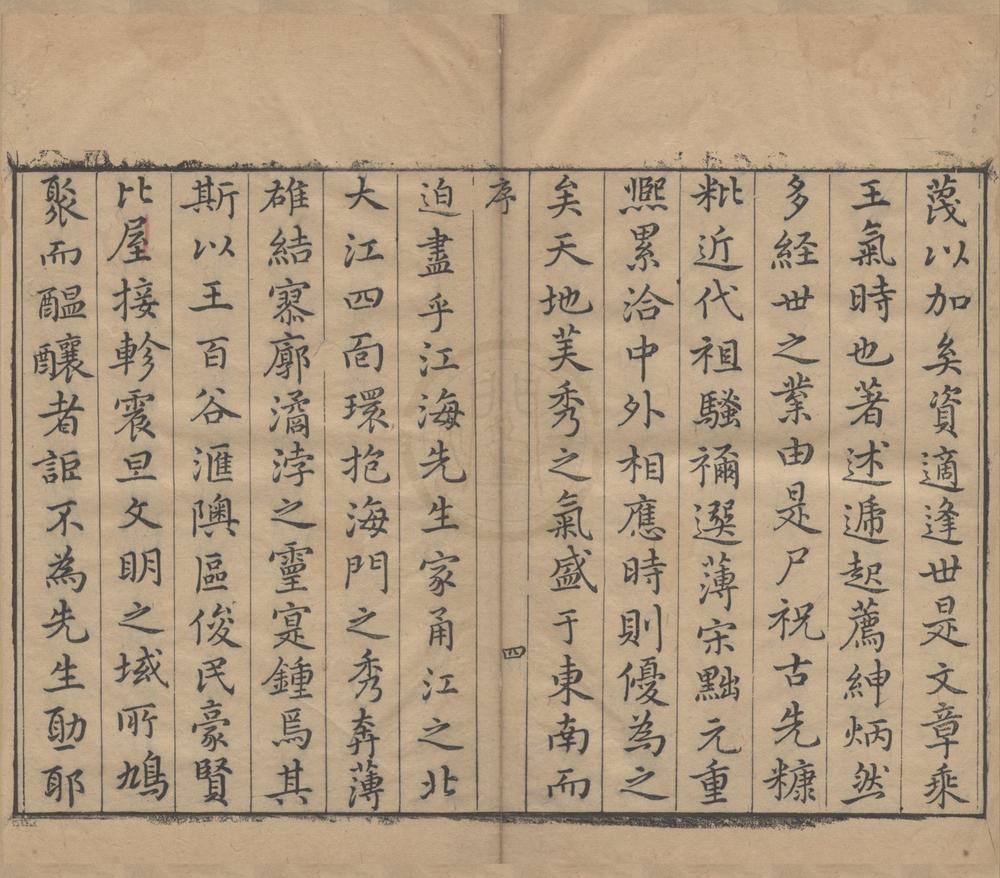 蔑以加矣資適逢世是文章乘
王氣時也著述遞起薦紳炳然
多経世之業由是尸祝古先糠
粃近代祖騷禰選薄宋黜元重
熈累洽中外相應時則優為之
矣天地芙秀之氣盛于東南而
序
四
迫盡乎江海先生家甬江之北
大江四面環抱海門之秀奔薄
雄結寥廓潏浡之靈寔鍾焉其
斯以王百谷滙隩區俊民豪賢
比屋接軫震旦文明之域所鳩
聚而醞釀者詎不為先生助耶